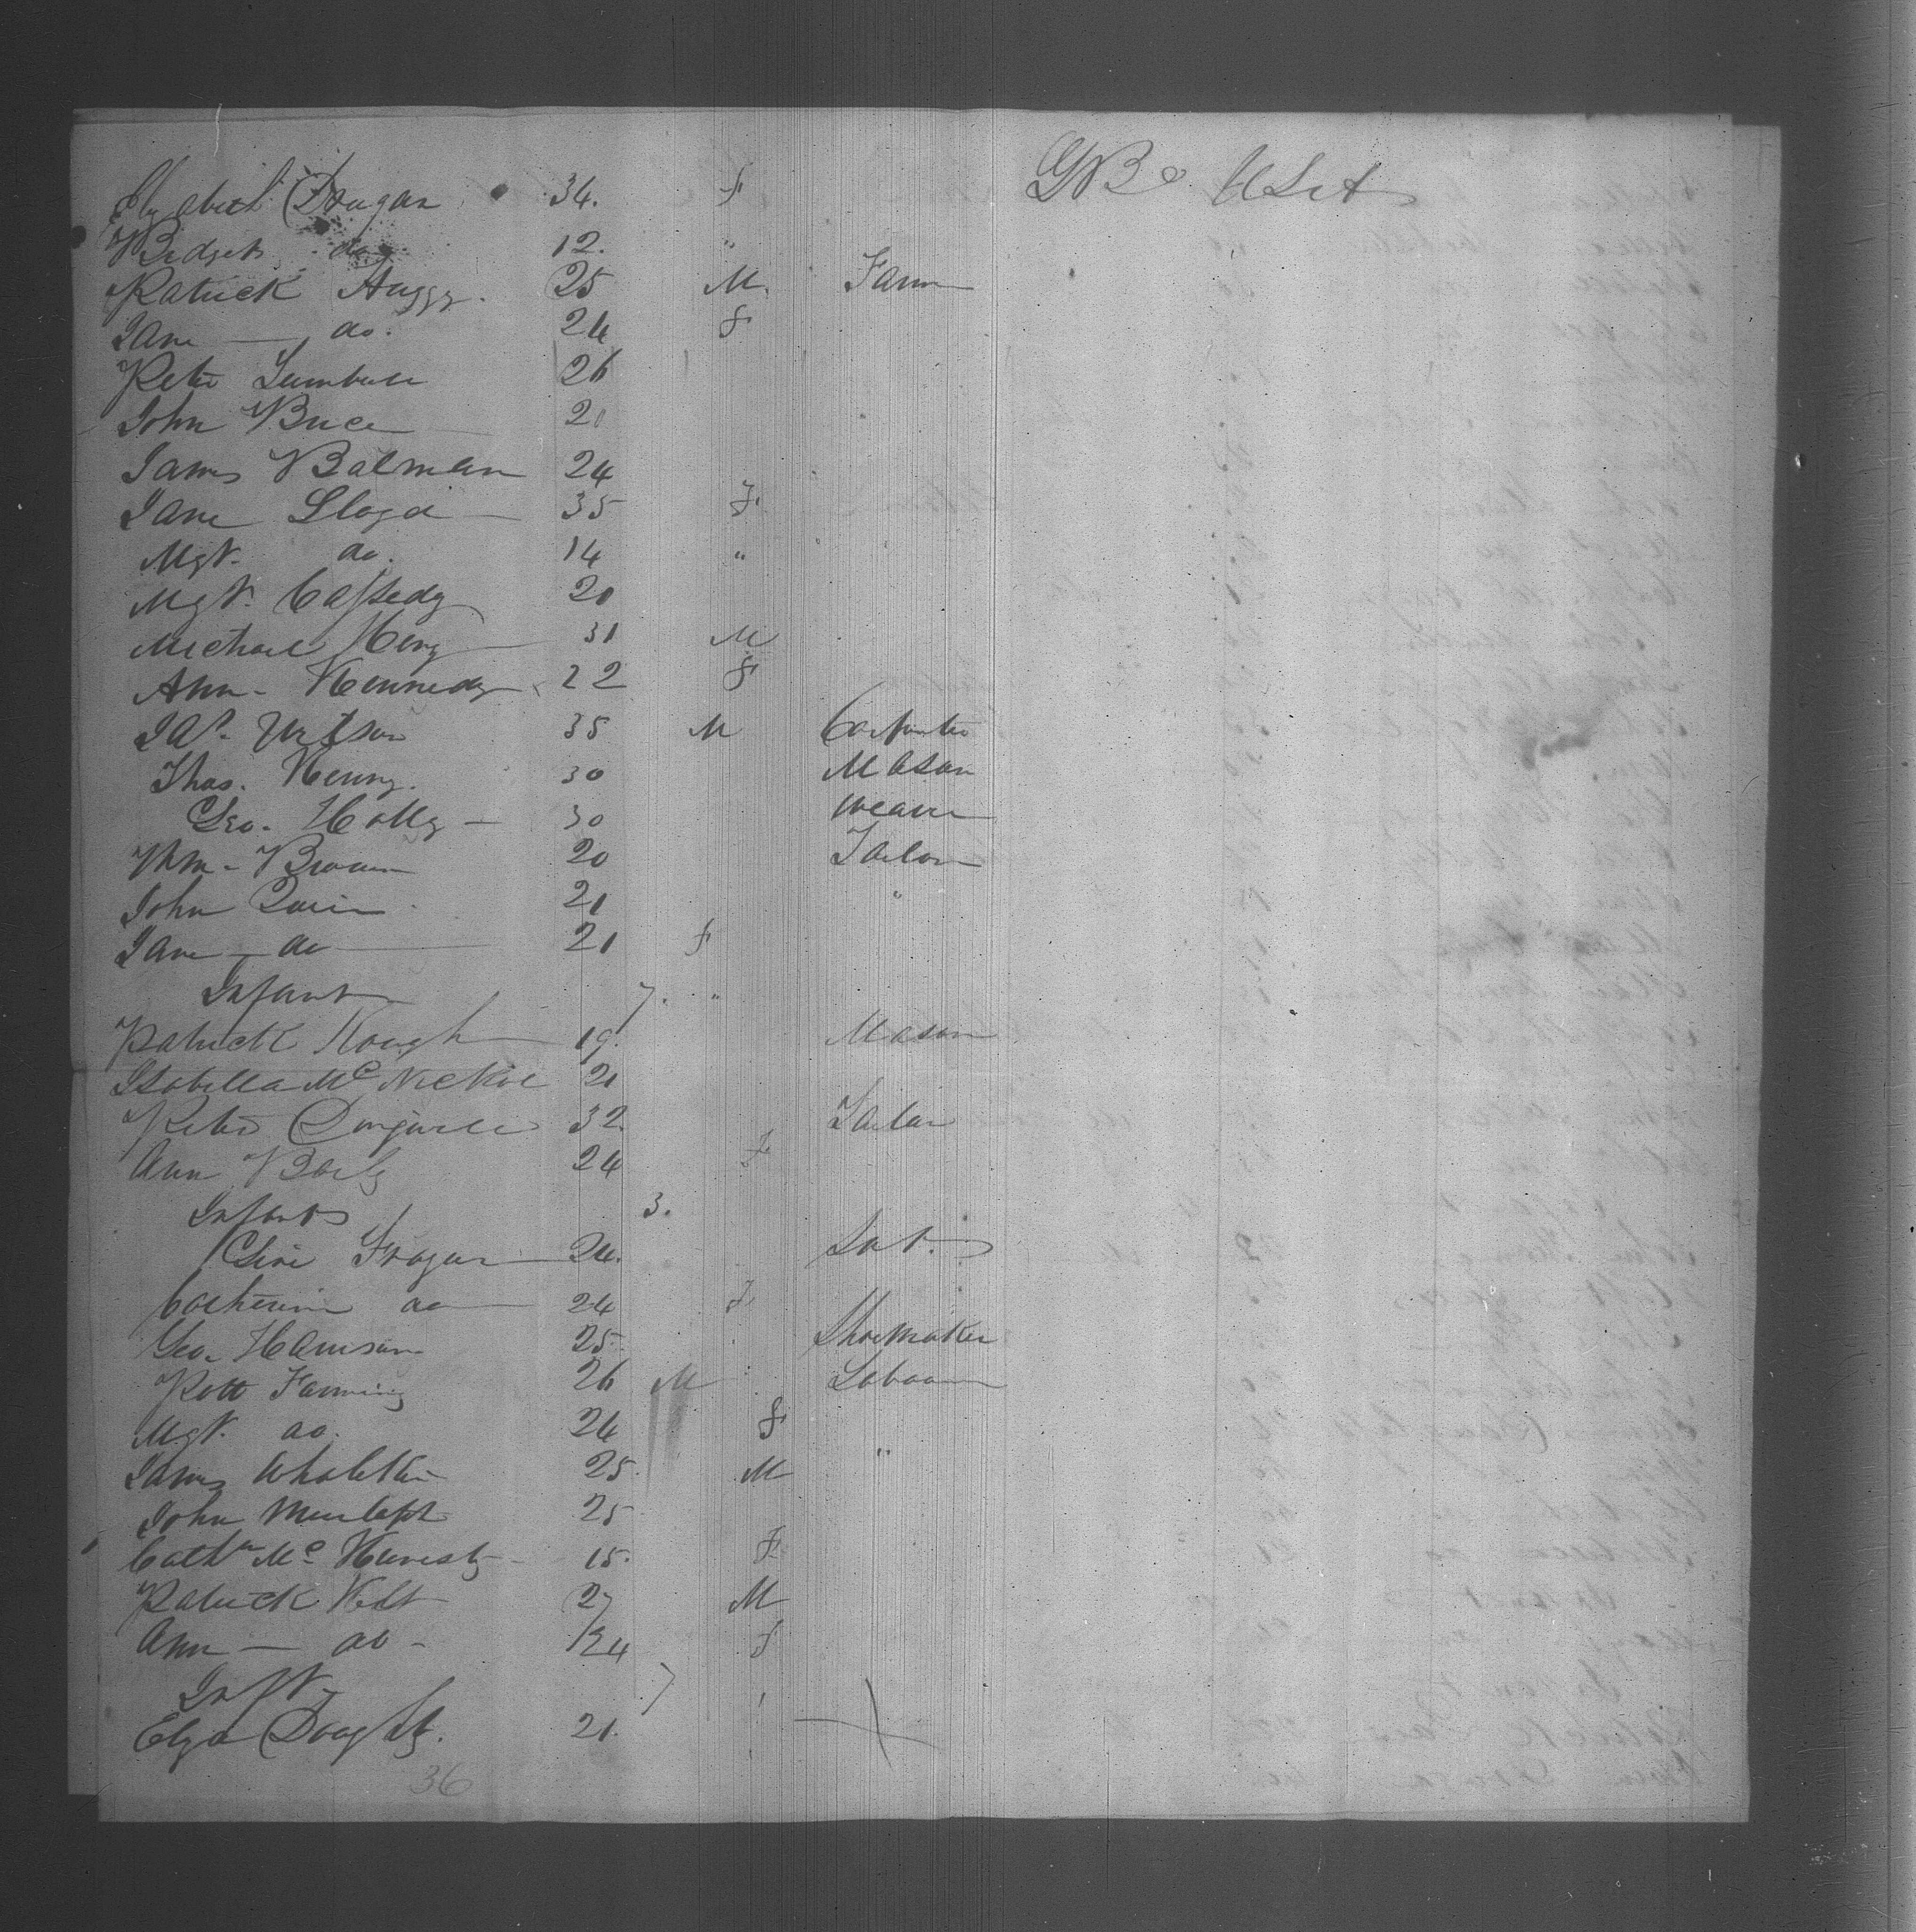 Elizabeth Dougan 34. F GB & USA
Bridget do 12. "
Patrick Huggy. 25 M. Farm
Jane — do. 24 F
Peter 26
John Bruce 20
James Balman 24
Jane Lloyd 35 F
Mgt. do. 14 "
Mgt. Cassedy 20
Michael Heny 31 M
Ann - Kennedy 22 F
Jas. Wilson 35 M Carpenter
Thos. Henry. 30 Mason
Geo. Holly — 30 Weaver
Wm - Brown 20 Tailor
John Quin 21 "
Jane — do 21 F
Infant 7. "
Patrick Rough 19. Mason
Isabella Mc Nickol 21
Peter 32. Tailor
Ann 24 F
Infants 3.
Fragar 24. Lab.
Catherine do 24 F
Geo. Harrison 25. Shoemaker
Patt Fanning 26 M Laborer
Mgt. do. 24 F
James 25. M "
John 25
Cathn. Mc 15. F
Patrick 27 M
Ann — do - 24 F
Inft. 7
Eliza 21.
36